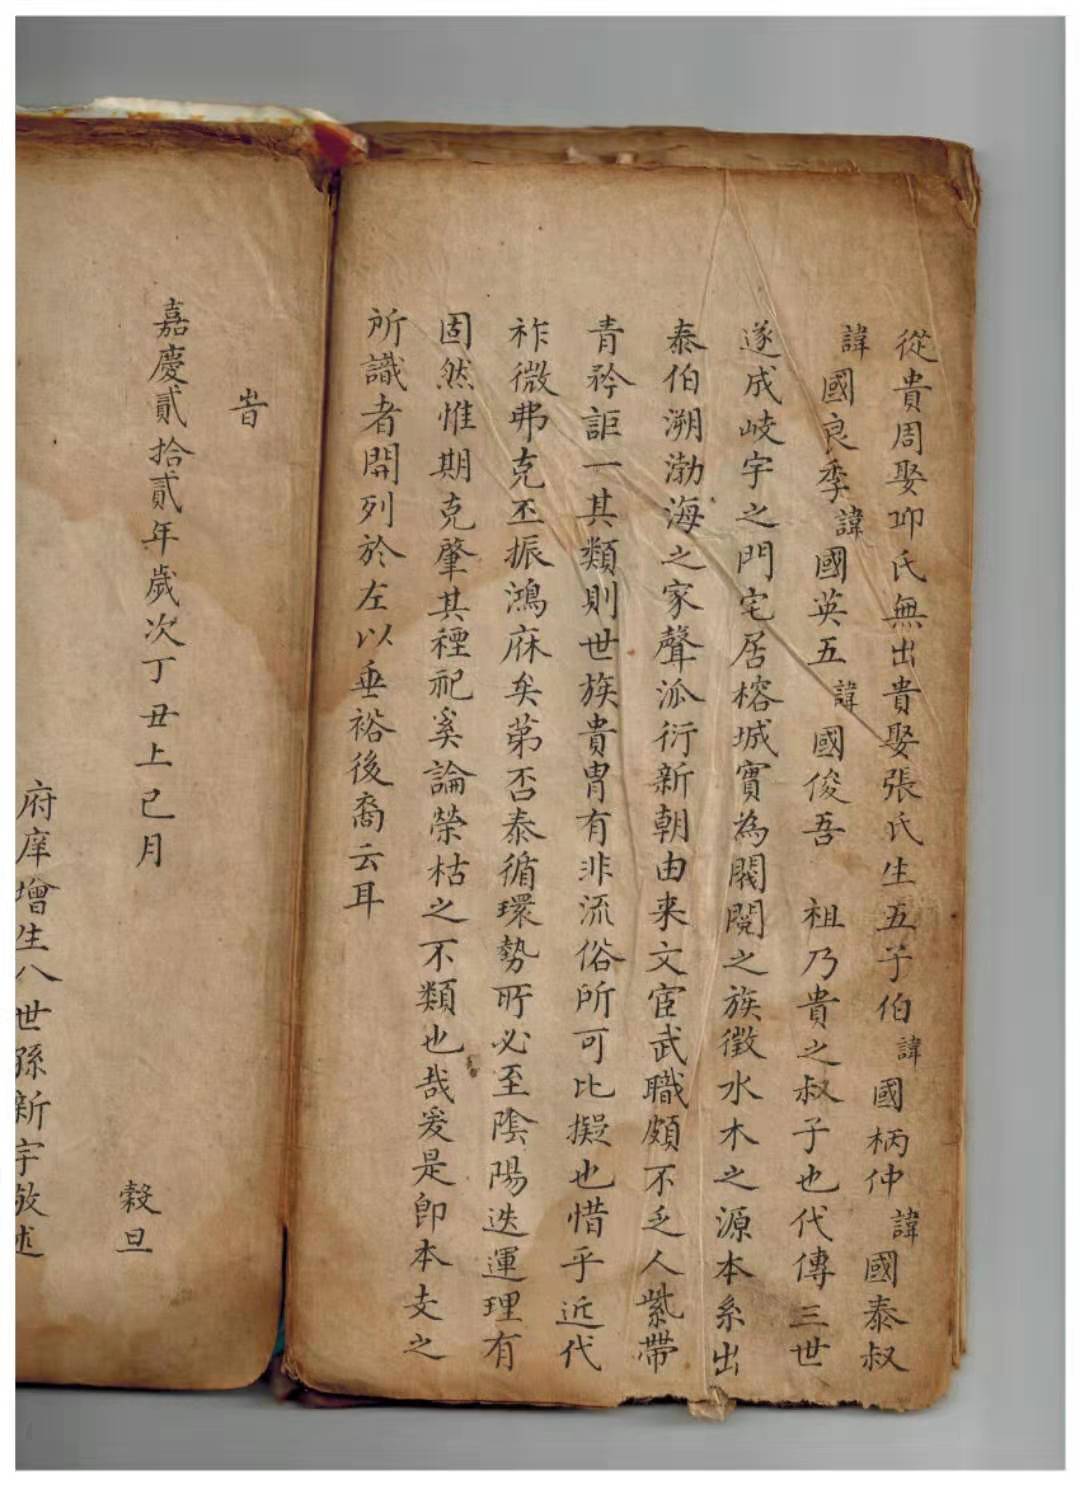 從貴周娶邛氏無出貴娶張氏生五子伯諱國柄仲諱國泰叔
諱國良季諱國英五諱國俊吾 祖乃貴之叔子也代傳三世
遂成岐宇之門宅居榕城實為閥閱之族徵水木之源本系出
泰伯溯渤海之家聲派衍新朝由来文宦武職頗不乏人紫帶
青衿詎一其類則世族貴胄有非流俗所可比擬也惜乎近代
祚微弗克丕振鴻庥矣第否泰循環勢所必至陰陽迭運理有
固然惟期克肇其禋祀奚論榮枯之不類也哉爰是即本支之
所識者開列於左以垂裕後裔云耳
旹
嘉慶貳拾貳年歲次丁丑上巳月 穀旦
府庠增生八世孫新宇敬述